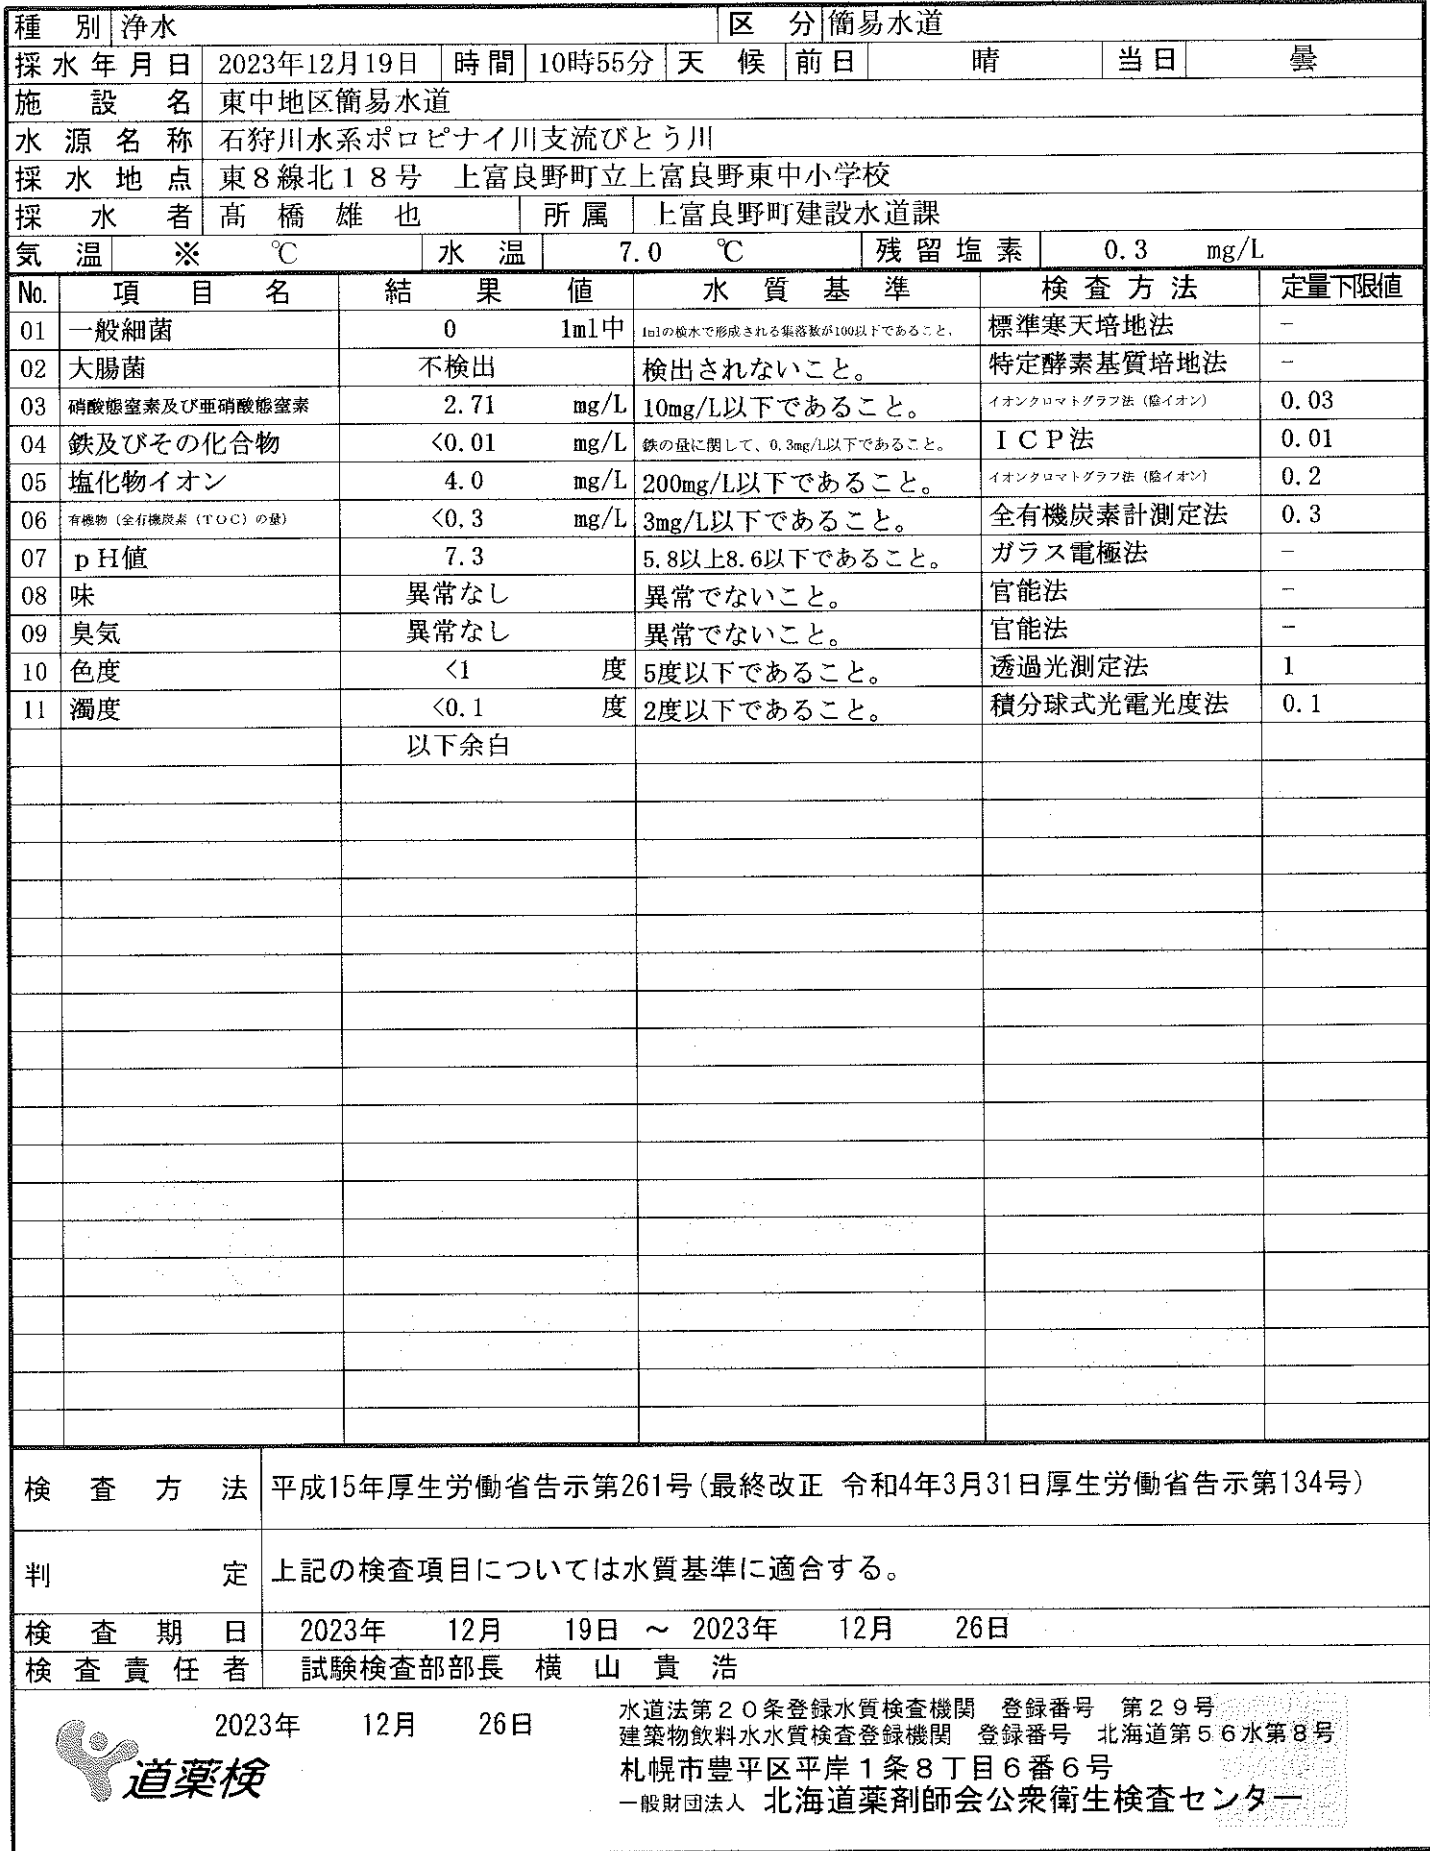 種別 浄水 区分 簡易水道
採水年月日 2023年12月19日 時間 10時55分 天候 前日 晴 当日 曇
施設名 東中地区簡易水道
水源名称 石狩川水系ポロピナイ川支流びとう川
採水地点 東8線北18号 上富良野町立上富良野東中小学校
採水者 髙橋雄也 所属 上富良野町建設水道課
気温 ※ ℃ 水温 7.0 ℃ 残留塩素 0.3 mg/L
No. 項目名 結果値 水質基準 検査方法 定量下限値
01 一般細菌 0 1ml中 1mlの検水で形成される集落数が100以下であること。 標準寒天培地法 －
02 大腸菌 不検出 検出されないこと。 特定酵素基質培地法 －
03 硝酸態窒素及び亜硝酸態窒素 2.71 mg/L 10mg/L以下であること。 イオンクロマトグラフ法（陰イオン） 0.03
04 鉄及びその化合物 <0.01 mg/L 鉄の量に関して、0.3mg/L以下であること。 ＩＣＰ法 0.01
05 塩化物イオン 4.0 mg/L 200mg/L以下であること。 イオンクロマトグラフ法（陰イオン） 0.2
06 有機物（全有機炭素（ＴＯＣ）の量） <0.3 mg/L 3mg/L以下であること。 全有機炭素計測定法 0.3
07 ｐＨ値 7.3 5.8以上8.6以下であること。 ガラス電極法 －
08 味 異常なし 異常でないこと。 官能法 －
09 臭気 異常なし 異常でないこと。 官能法 －
10 色度 <1 度 5度以下であること。 透過光測定法 1
11 濁度 <0.1 度 2度以下であること。 積分球式光電光度法 0.1
以下余白
検査方法 平成15年厚生労働省告示第261号(最終改正 令和4年3月31日厚生労働省告示第134号)
判定 上記の検査項目については水質基準に適合する。
検査期日 2023年 12月 19日 ～ 2023年 12月 26日
検査責任者 試験検査部部長 横山貴浩
2023年 12月 26日
道薬検
水道法第２０条登録水質検査機関 登録番号 第２９号
建築物飲料水水質検査登録機関 登録番号 北海道第５６水第８号
札幌市豊平区平岸１条８丁目６番６号
一般財団法人 北海道薬剤師会公衆衛生検査センター